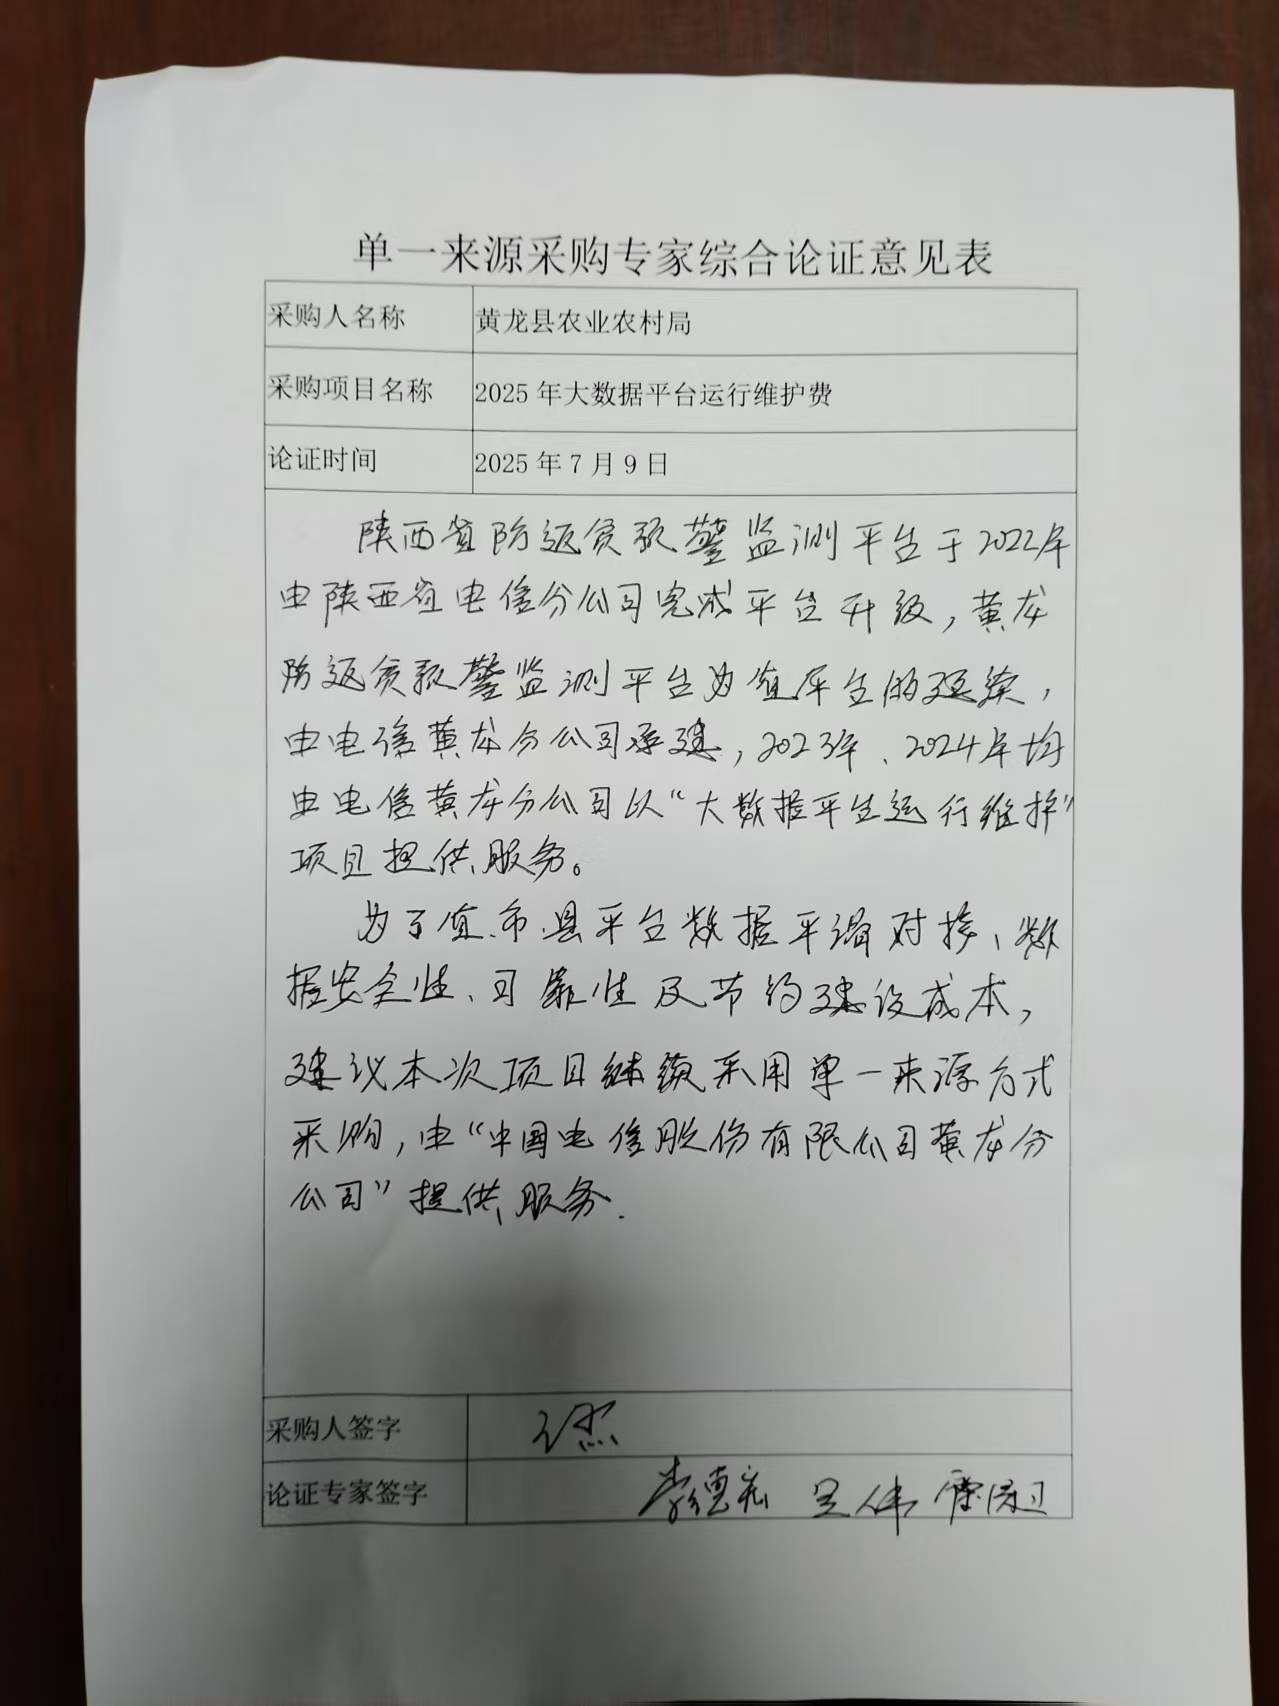 单一来源采购专家综合论证意见表
采购人名称 黄龙县农业农村局
采购项目名称 2025年大数据平台运行维护费
论证时间 2025年7月9日
陕西省防返贫预警监测平台于2022年
由陕西省电信分公司完成平台升级，黄龙
防返贫预警监测平台为省平台的延续，
由电信黄龙分公司承建，2023年、2024年均
由电信黄龙分公司以“大数据平台运行维护”
项目提供服务。
为了省、市、县平台数据平滑对接、数
据安全性、可靠性及节约建设成本，
建议本次项目继续采用单一来源方式
采购，由“中国电信股份有限公司黄龙分
公司”提供服务.
采购人签字
论证专家签字